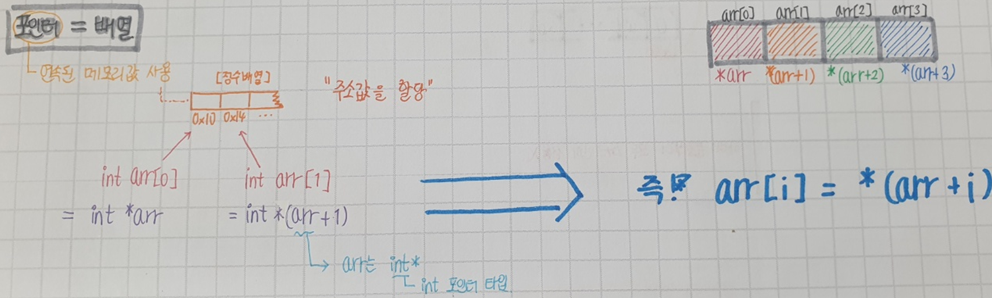 포인터 = 배열
연속된 메모리값 사용
[정수배열]
0x10 0x14 ...
"주소값을 할당"
int arr[0]
= int *arr
int arr[1]
= int *(arr+1)
arr는 int*
int 포인터 타입
arr[0] arr[1] arr[2] arr[3]
*arr *(arr+1) *(arr+2) *(arr+3)
즉! arr[i] = *(arr+i)